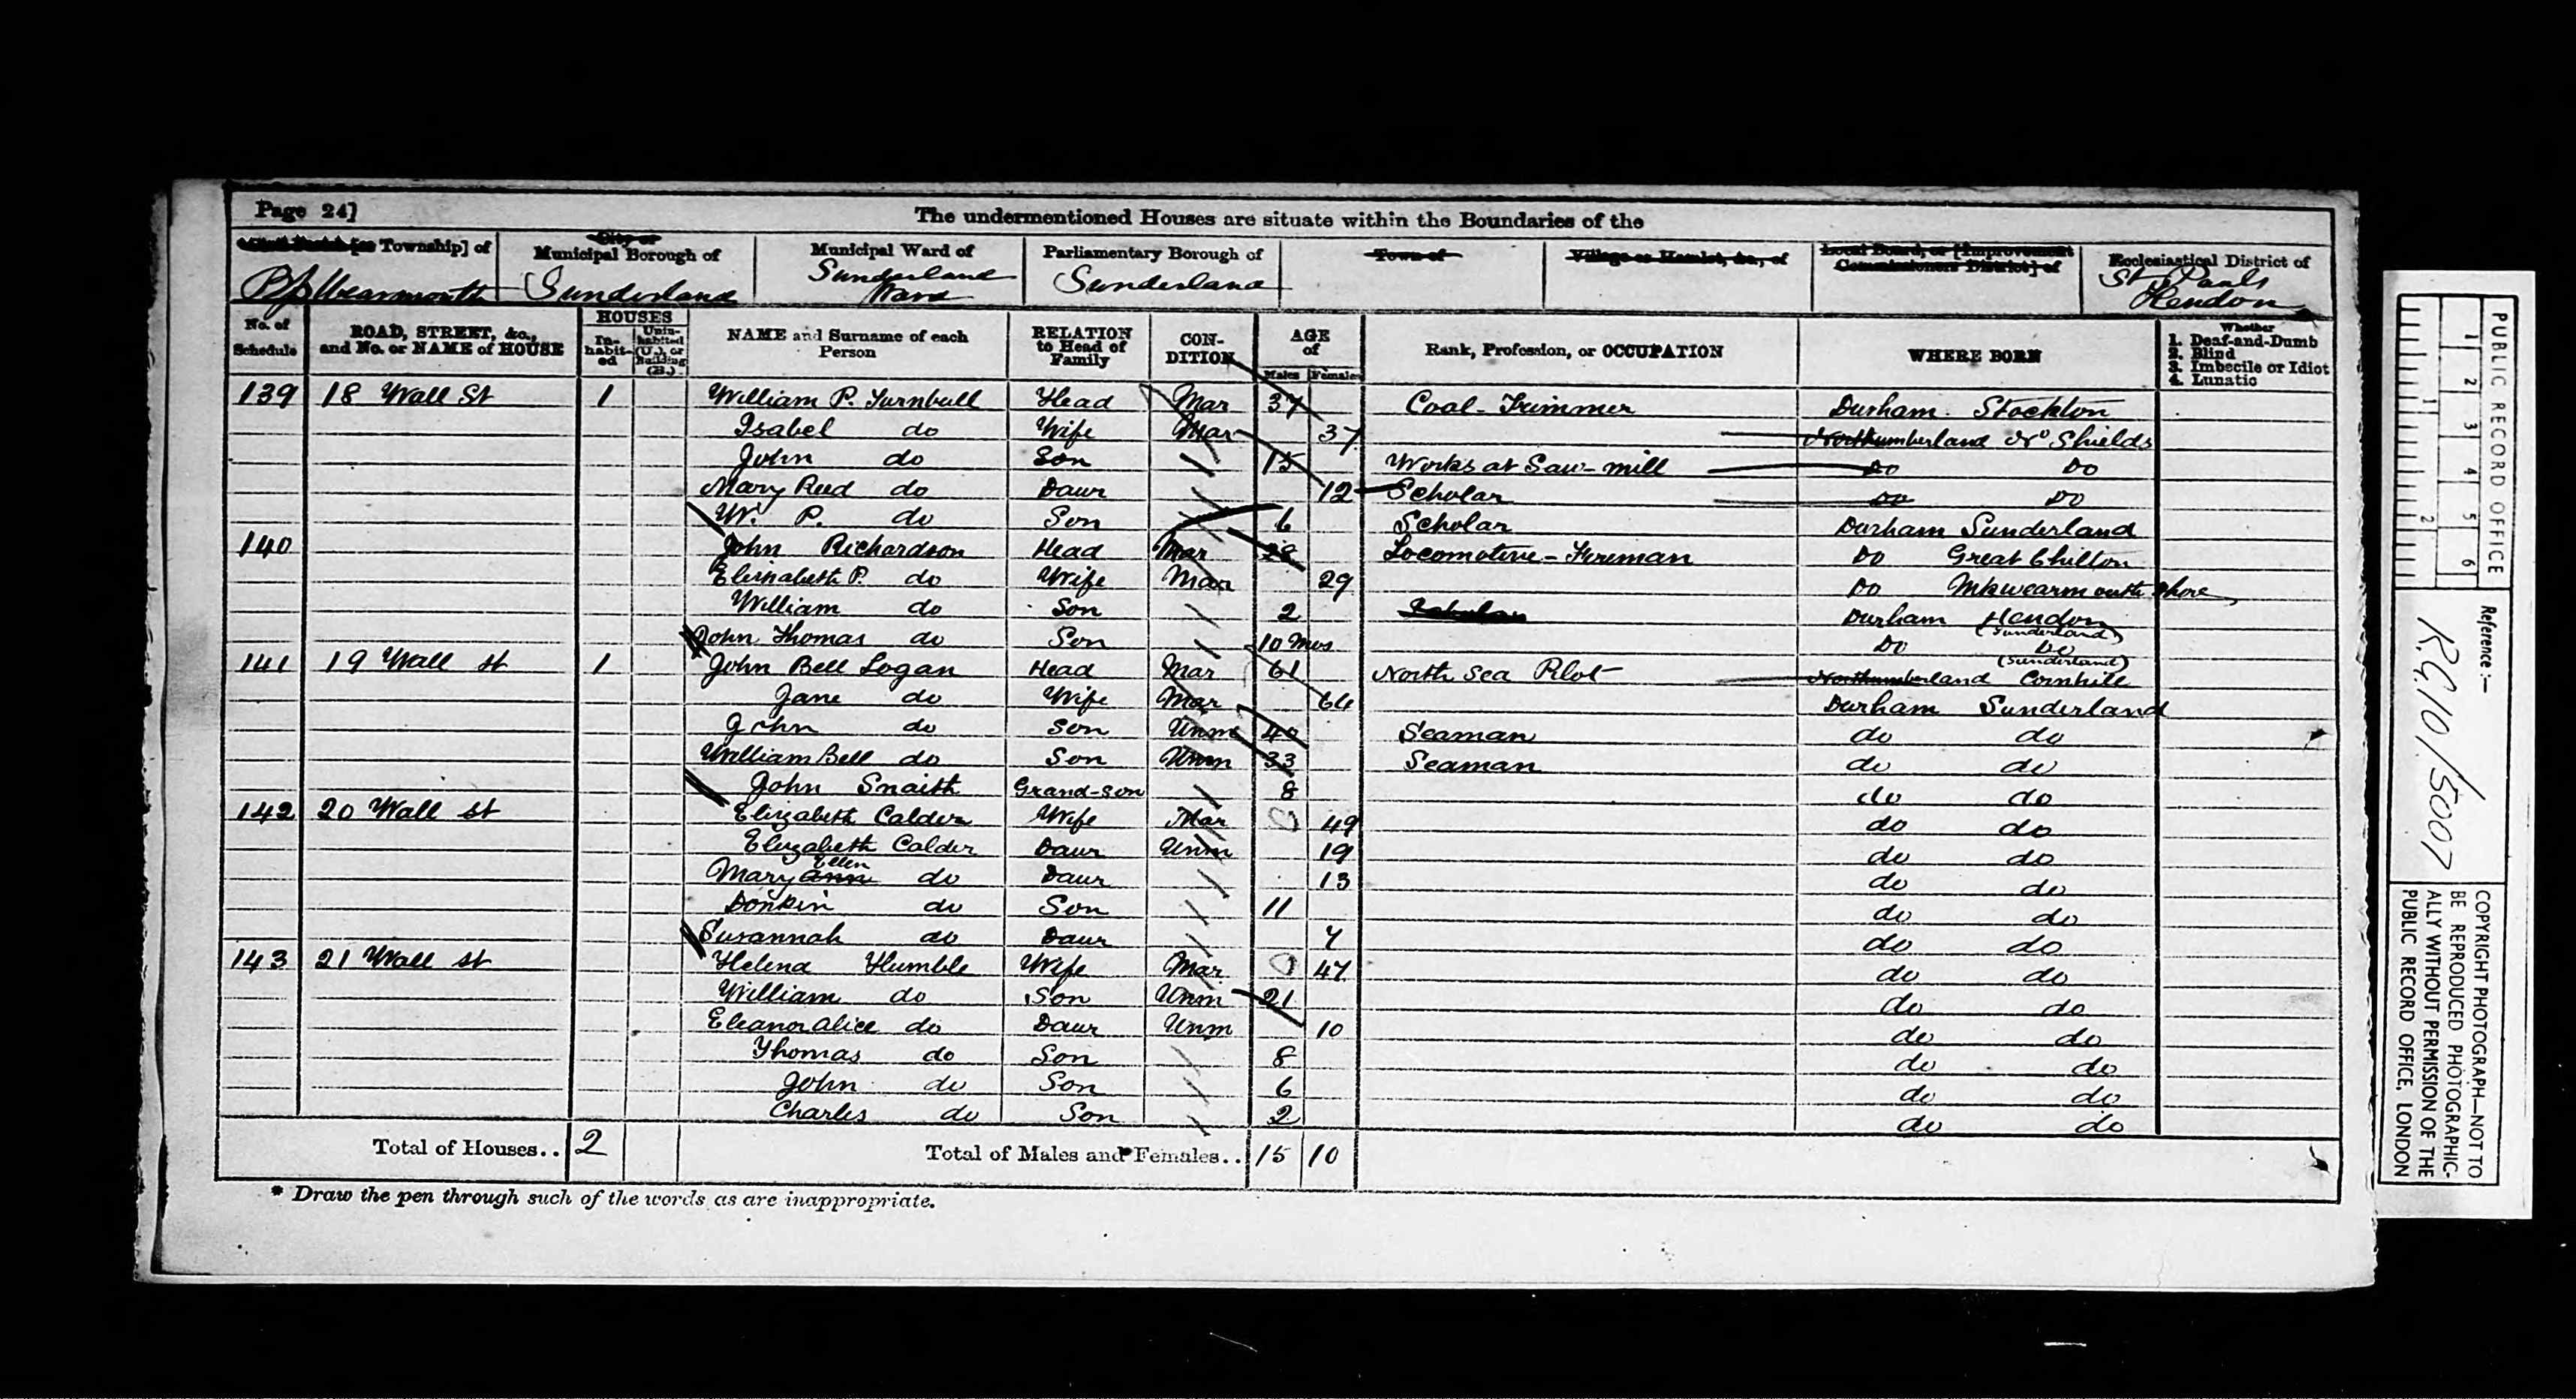 Page 24]
The undermentioned Houses are situate within the Boundaries of the
Township] of
City or Municipal Borough of
Municipal Ward of
Parliamentary Borough of
Town of
Village or Hamlet, &c., of
Local Board, or [Improvement Commissioners District] of
Ecclesiastical District of
Bp Wearmouth Sunderland Sunderland Ward Sunderland St Pauls Hendon
No. of Schedule
ROAD, STREET, &c., and No. or NAME of HOUSE
HOUSES
In-habit-ed
Unin-habited (U.), or Building (B.)
NAME and Surname of each Person
RELATION to Head of Family
CON-DITION
AGE of
Males Females
Rank, Profession, or OCCUPATION
WHERE BORN
Whether
1. Deaf-and-Dumb
2. Blind
3. Imbecile or Idiot
4. Lunatic
139 18 Wall St 1 William P. Turnbull Head Mar 37 Coal-Trimmer Durham Stockton
Isabel do Wife Mar 37 Northumberland No Shields
John do Son 15 Works at Saw-mill Do Do
Mary Reed do Daur 12 Scholar Do Do
W. P. do Son 6 Scholar Durham Sunderland
140 John Richardson Head Mar 28 Locomotive-Fireman Do Great Chilton
Elisabeth P. do Wife Mar 29 Do Mkwearmouth Shore
William do Son 2 Scholar Durham Hendon (Sunderland)
John Thomas do Son 10 Mos Do Do (Sunderland)
141 19 Wall st 1 John Bell Logan Head Mar 61 North Sea Pilot Northumberland Cornhill
Jane do Wife Mar 64 Durham Sunderland
John do Son Unm 40 Seaman do do
William Bell do Son Unm 33 Seaman do do
John Snaith Grand-son 8 do do
142 20 Wall st Elizabeth Calder Wife Mar 49 do do
Elizabeth Calder Daur Unm 19 do do
Mary Ann Ellen do Daur 13 do do
Donkin do Son 11 do do
Susannah do Daur 7 do do
143 21 Wall st Helena Humble Wife Mar 47 do do
William do Son Unm 21 do do
Eleanor Alice do Daur Unm 10 do do
Thomas do Son 8 do do
John do Son 6 do do
Charles do Son 2 do do
Total of Houses.. 2 Total of Males and Females.. 15 10
* Draw the pen through such of the words as are inappropriate.
PUBLIC RECORD OFFICE
1 2 3 4 5 6
1 2
Reference:—
R.G.10/5007
COPYRIGHT PHOTOGRAPH—NOT TO
BE REPRODUCED PHOTOGRAPHIC-
ALLY WITHOUT PERMISSION OF THE
PUBLIC RECORD OFFICE, LONDON